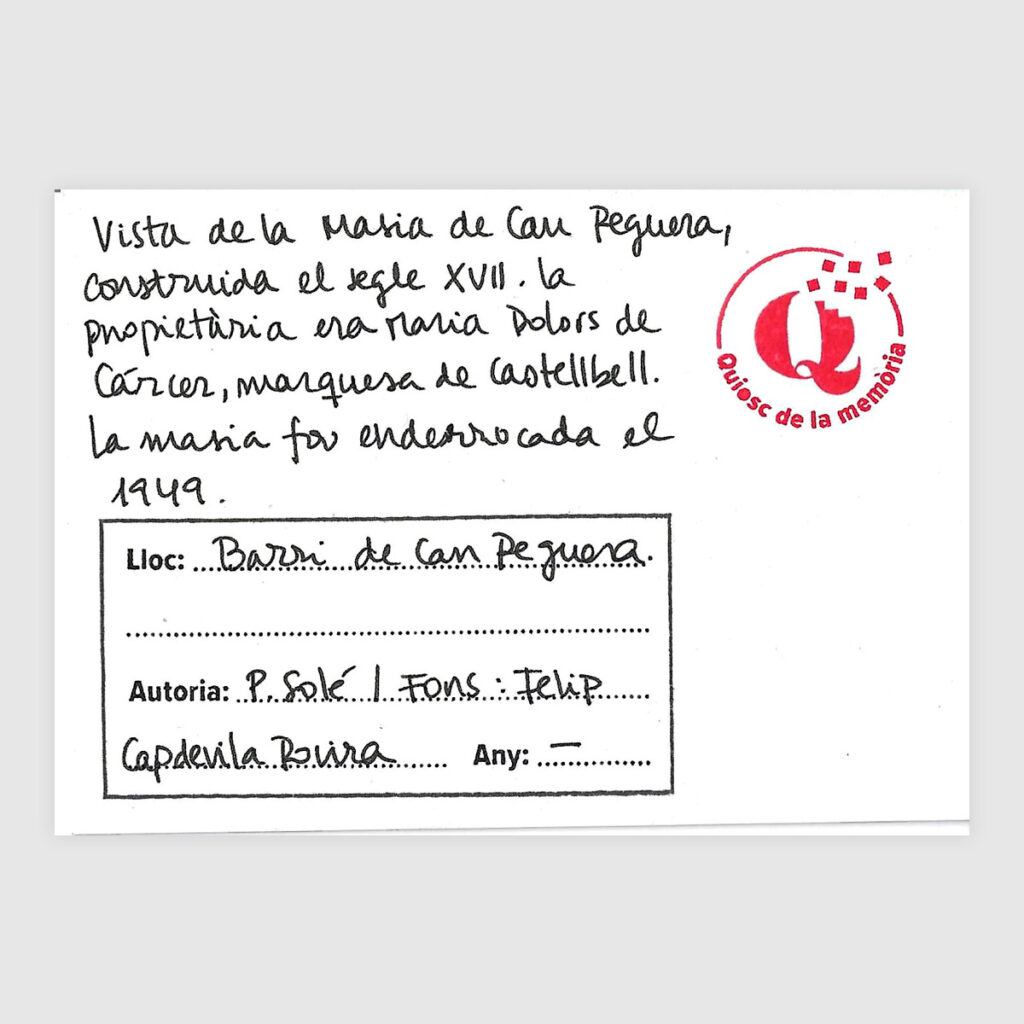 Vista de la Masia de Can Peguera,
construida el segle XVII. La
propietària era Maria Dolors de
Cárcer, marquesa de Castellbell.
La masia fou enderrocada el
1949.
Quiosc de la memòria
Lloc: Barri de Can Peguera.
Autoria: P. Solé / Fons: Felip
Capdevila Rovira Any: —